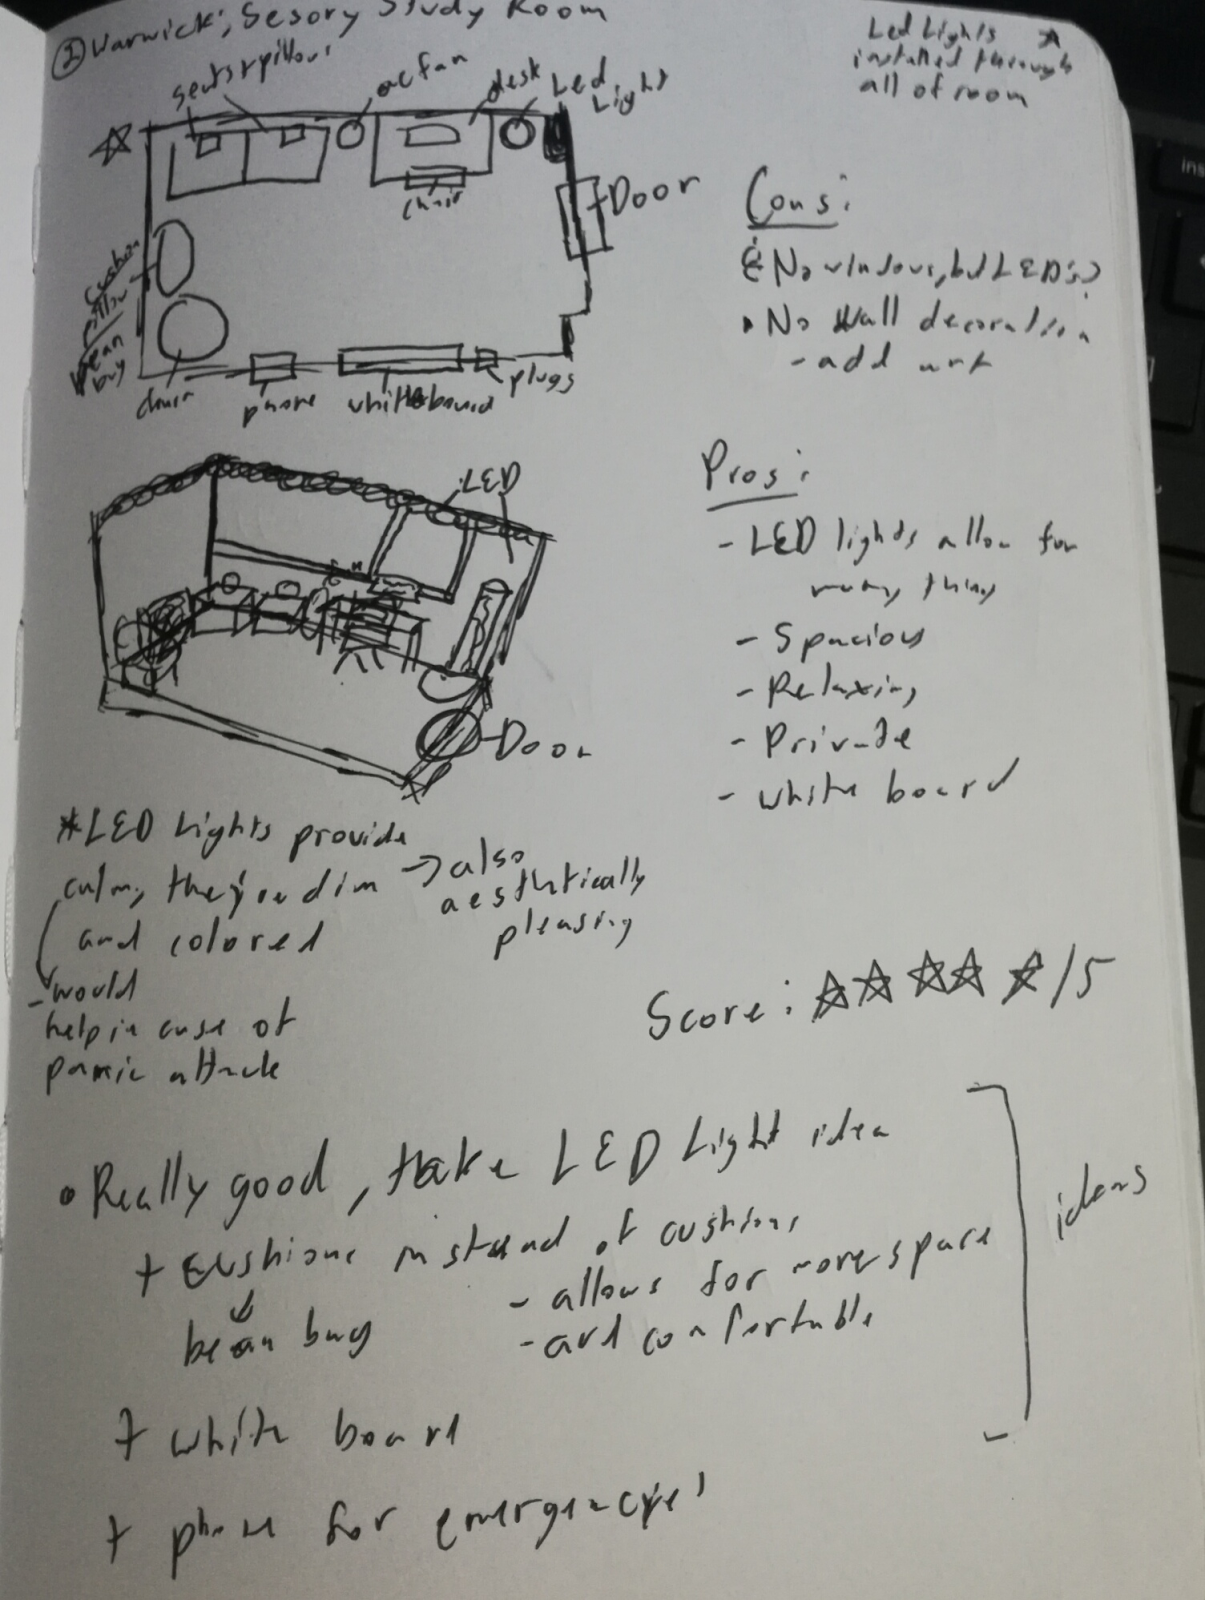 ② Warwick's Sesory Study Room
Led Lights ☆
installed through
all of room
seats+pillows
ac fan
desk
Led
Light
chair
Door
cushion
pillow
bean
bag
chair
phone
whiteboard
plugs
Cons:
No windows, but LED's
• No wall decoration
- add art
LED
Fan
Door
Pros:
- LED lights allow for
many things
- Spacious
- Relaxing
- Private
- white board
*LED Lights provide
calm, they're dim → also
aesthtically
pleasing
and colored
- would
help in case of
panic attack
Score: ☆☆☆☆☆/5
• Really good, take LED Light idea
+ cushions instead of cushions
bean bag
- allows for more space
- and comfortable
+ white board
+ phone for emergencys
ideas
ins